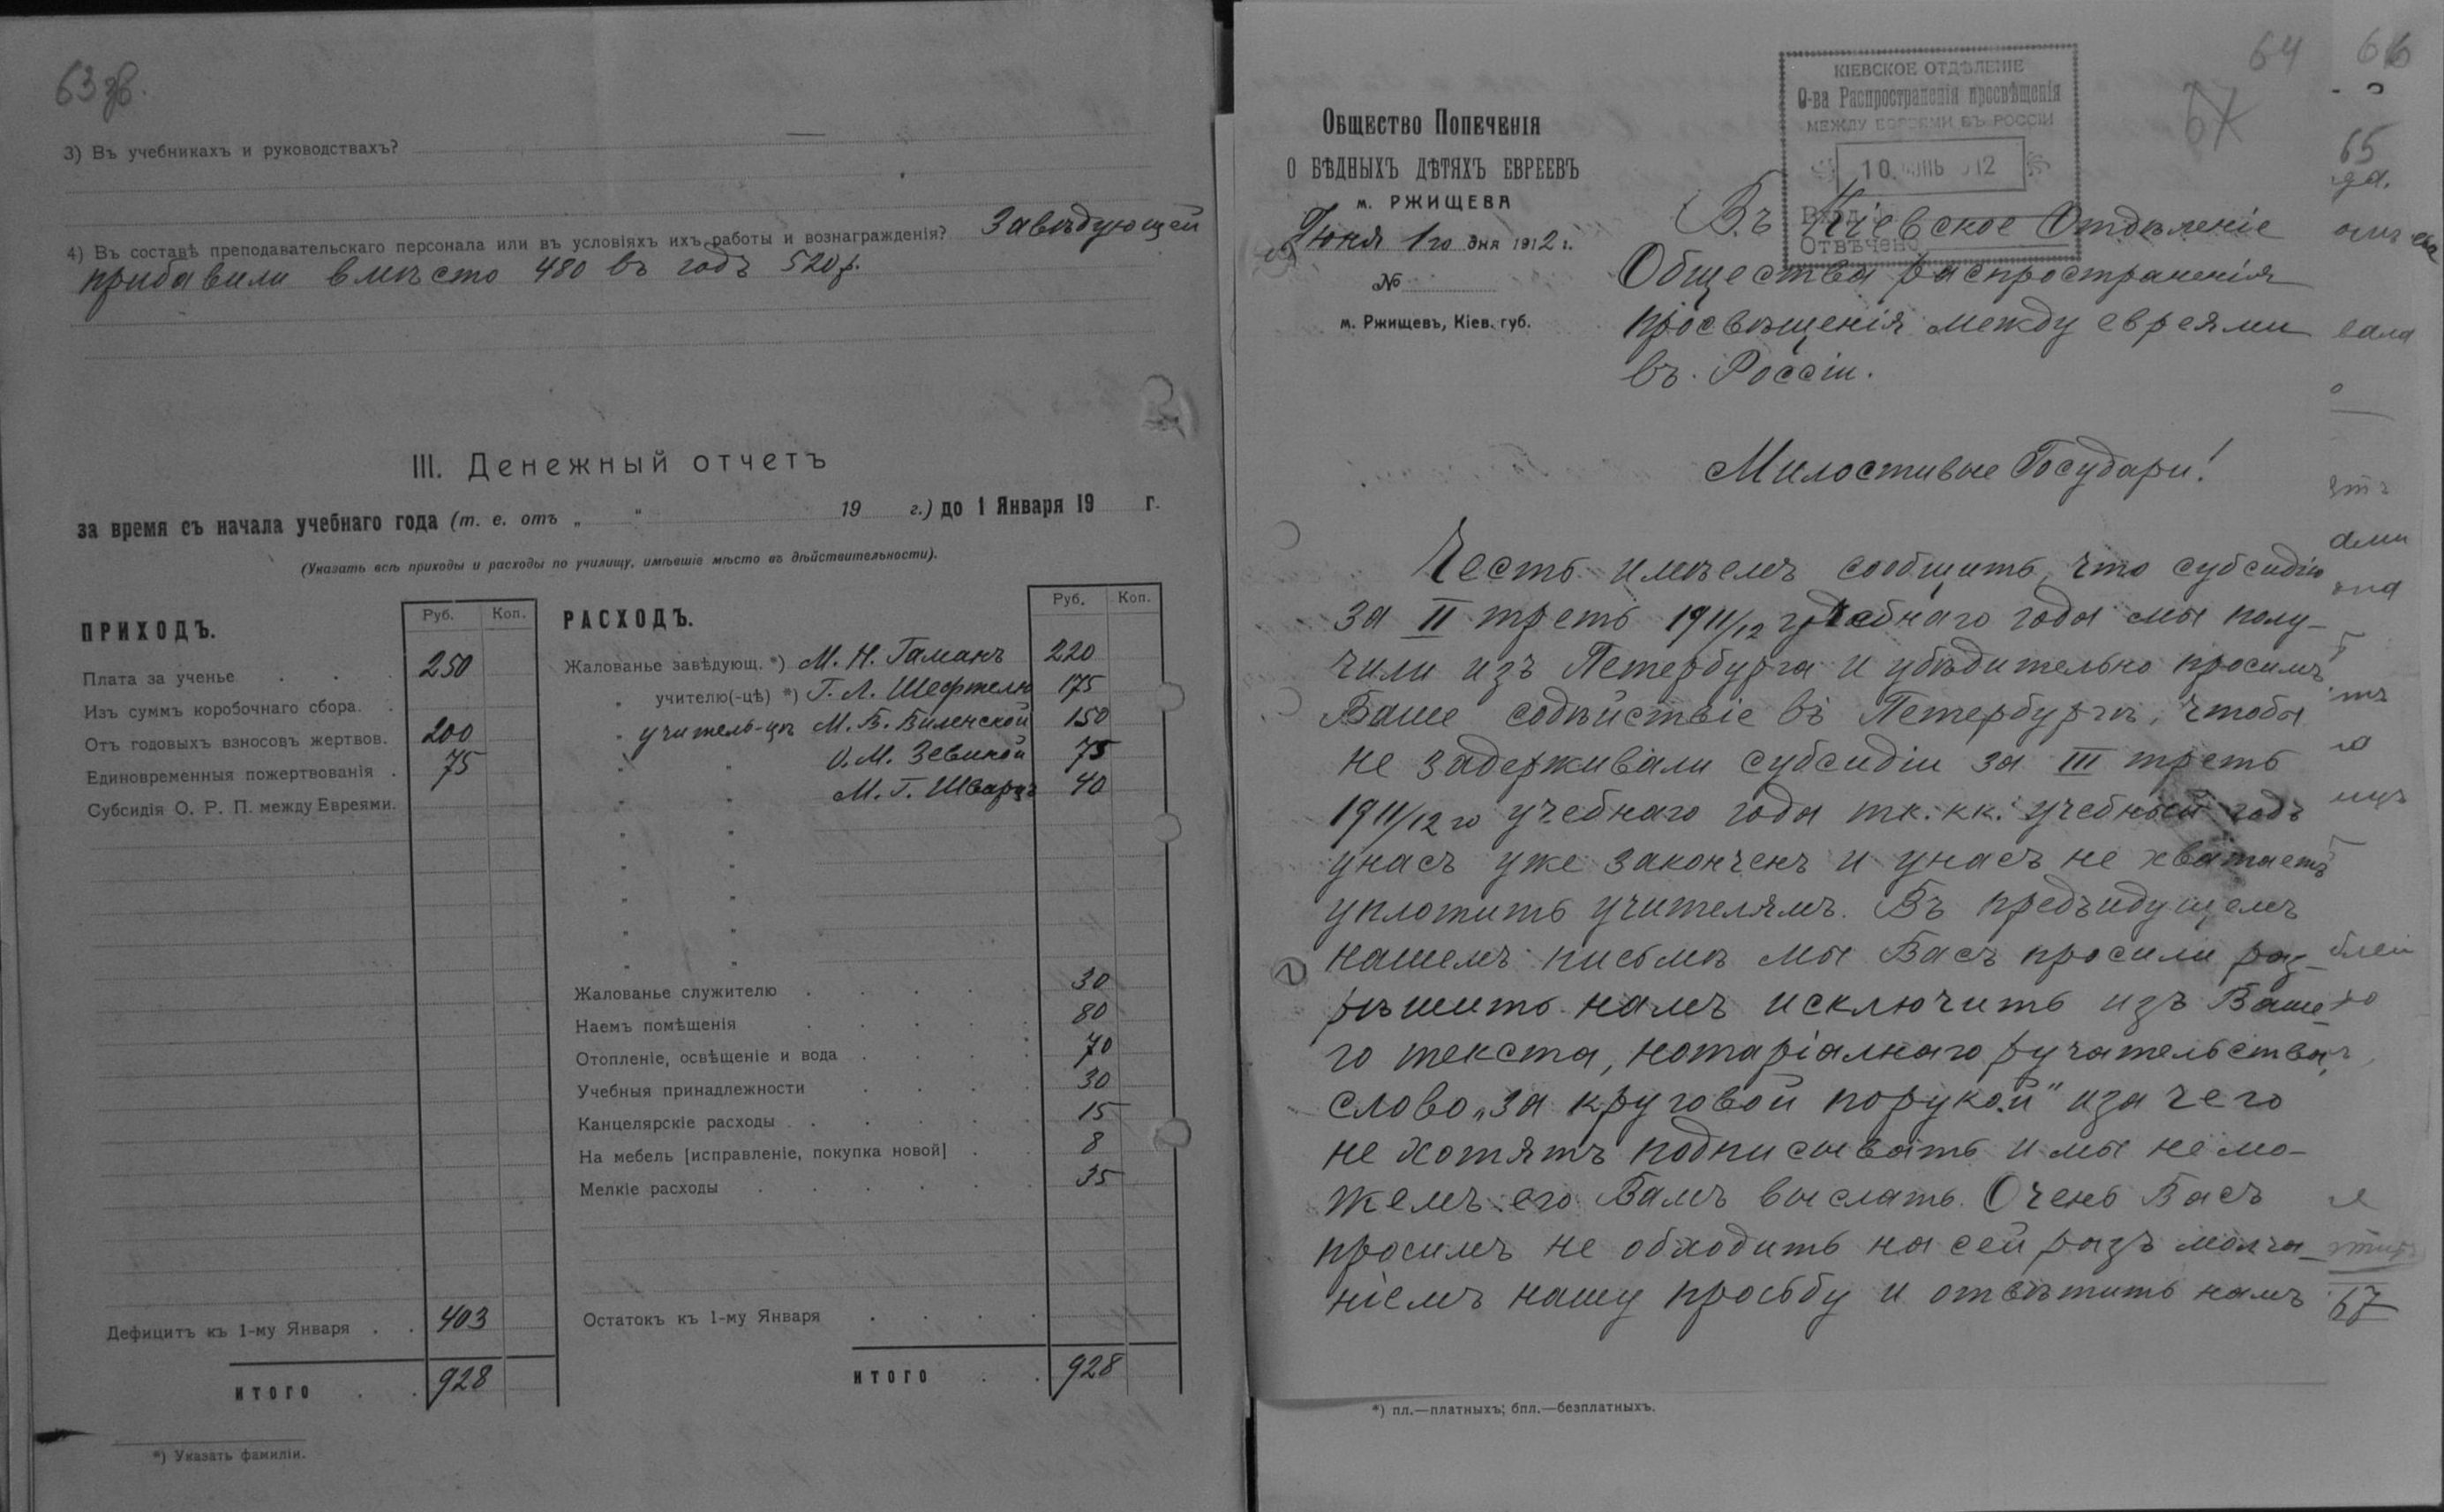 63 зв.
3) Въ учебникахъ и руководствахъ? —
4) Въ составѣ преподавательскаго персонала или въ условіяхъ ихъ работы и вознагражденія? Завѣдующей
прибавили вмѣсто 480 въ годъ 520 р.
III. Денежный отчетъ
за время съ начала учебнаго года (т. е. отъ „ " 19 г.) до 1 Января 19 г.
(Указать всѣ приходы и расходы по училищу, имѣвшіе мѣсто въ дѣйствительности).
ПРИХОДЪ. Руб. Коп.
Плата за ученье 250
Изъ суммъ коробочнаго сбора.
Отъ годовыхъ взносовъ жертвов. 200
Единовременныя пожертвованія . 75
Субсидія О. Р. П. между Евреями.
Дефицитъ къ 1-му Января . . 403
ИТОГО . . 928
*) Указать фамиліи.
РАСХОДЪ. Руб. Коп.
Жалованье завѣдующ. *) М. Н. Гаманъ 220
„ учителю(-цѣ) *) Г. Л. Шефтелю 175
„ учитель-цѣ М. В. Виленской 150
„ „ О. М. Зевиной 75
„ „ М. Г. Шварцъ 40
Жалованье служителю 30
Наемъ помѣщенія 80
Отопленіе, освѣщеніе и вода 70
Учебныя принадлежности 30
Канцелярскіе расходы 15
На мебель [исправленіе, покупка новой] 8
Мелкіе расходы 35
Остатокъ къ 1-му Января
ИТОГО . . 928
64 66
67
65
КІЕВСКОЕ ОТДѢЛЕНІЕ
О-ва Распространенія просвѣщенія
МЕЖДУ ЕВРЕЯМИ ВЪ РОССІИ
10 ІЮНЬ 912
Вход.
Отвѣчено
Общество Попеченія
О БѢДНЫХЪ ДѢТЯХЪ ЕВРЕЕВЪ
м. РЖИЩЕВА
Іюня 1го дня 1912 г.
№
м. Ржищевъ, Кіев. губ.
Въ Кіевское Отдѣленіе
Общества распространенія
просвѣщенія между евреями
въ Россіи.
Милостивые Государи!
Честь имѣемъ сообщить, что субсидію
за II треть 1911/12 учебнаго года мы полу-
чили изъ Петербурга и убѣдительно просимъ
Ваше содѣйствіе въ Петербургѣ, чтобы
не задерживали субсидіи за III треть
1911/12 го учебнаго года тк. кк. учебный годъ
унасъ уже законченъ и унасъ не хватаетъ
уплотить учителямъ. Въ предъидущемъ
нашемъ письмѣ мы Васъ просили раз-
рѣшить намъ исключить изъ Ваше-
го текста, нотаріалнаго ручательства,
слово „за круговой порукой" иза чего
не хотятъ подписывать и мы не мо-
жемъ его Вамъ выслать. Очень Васъ
просимъ не обходить на сей разъ молча-
ніемъ нашу просьбу и отвѣтить намъ
67
*) пл.—платныхъ; бпл.—безплатныхъ.